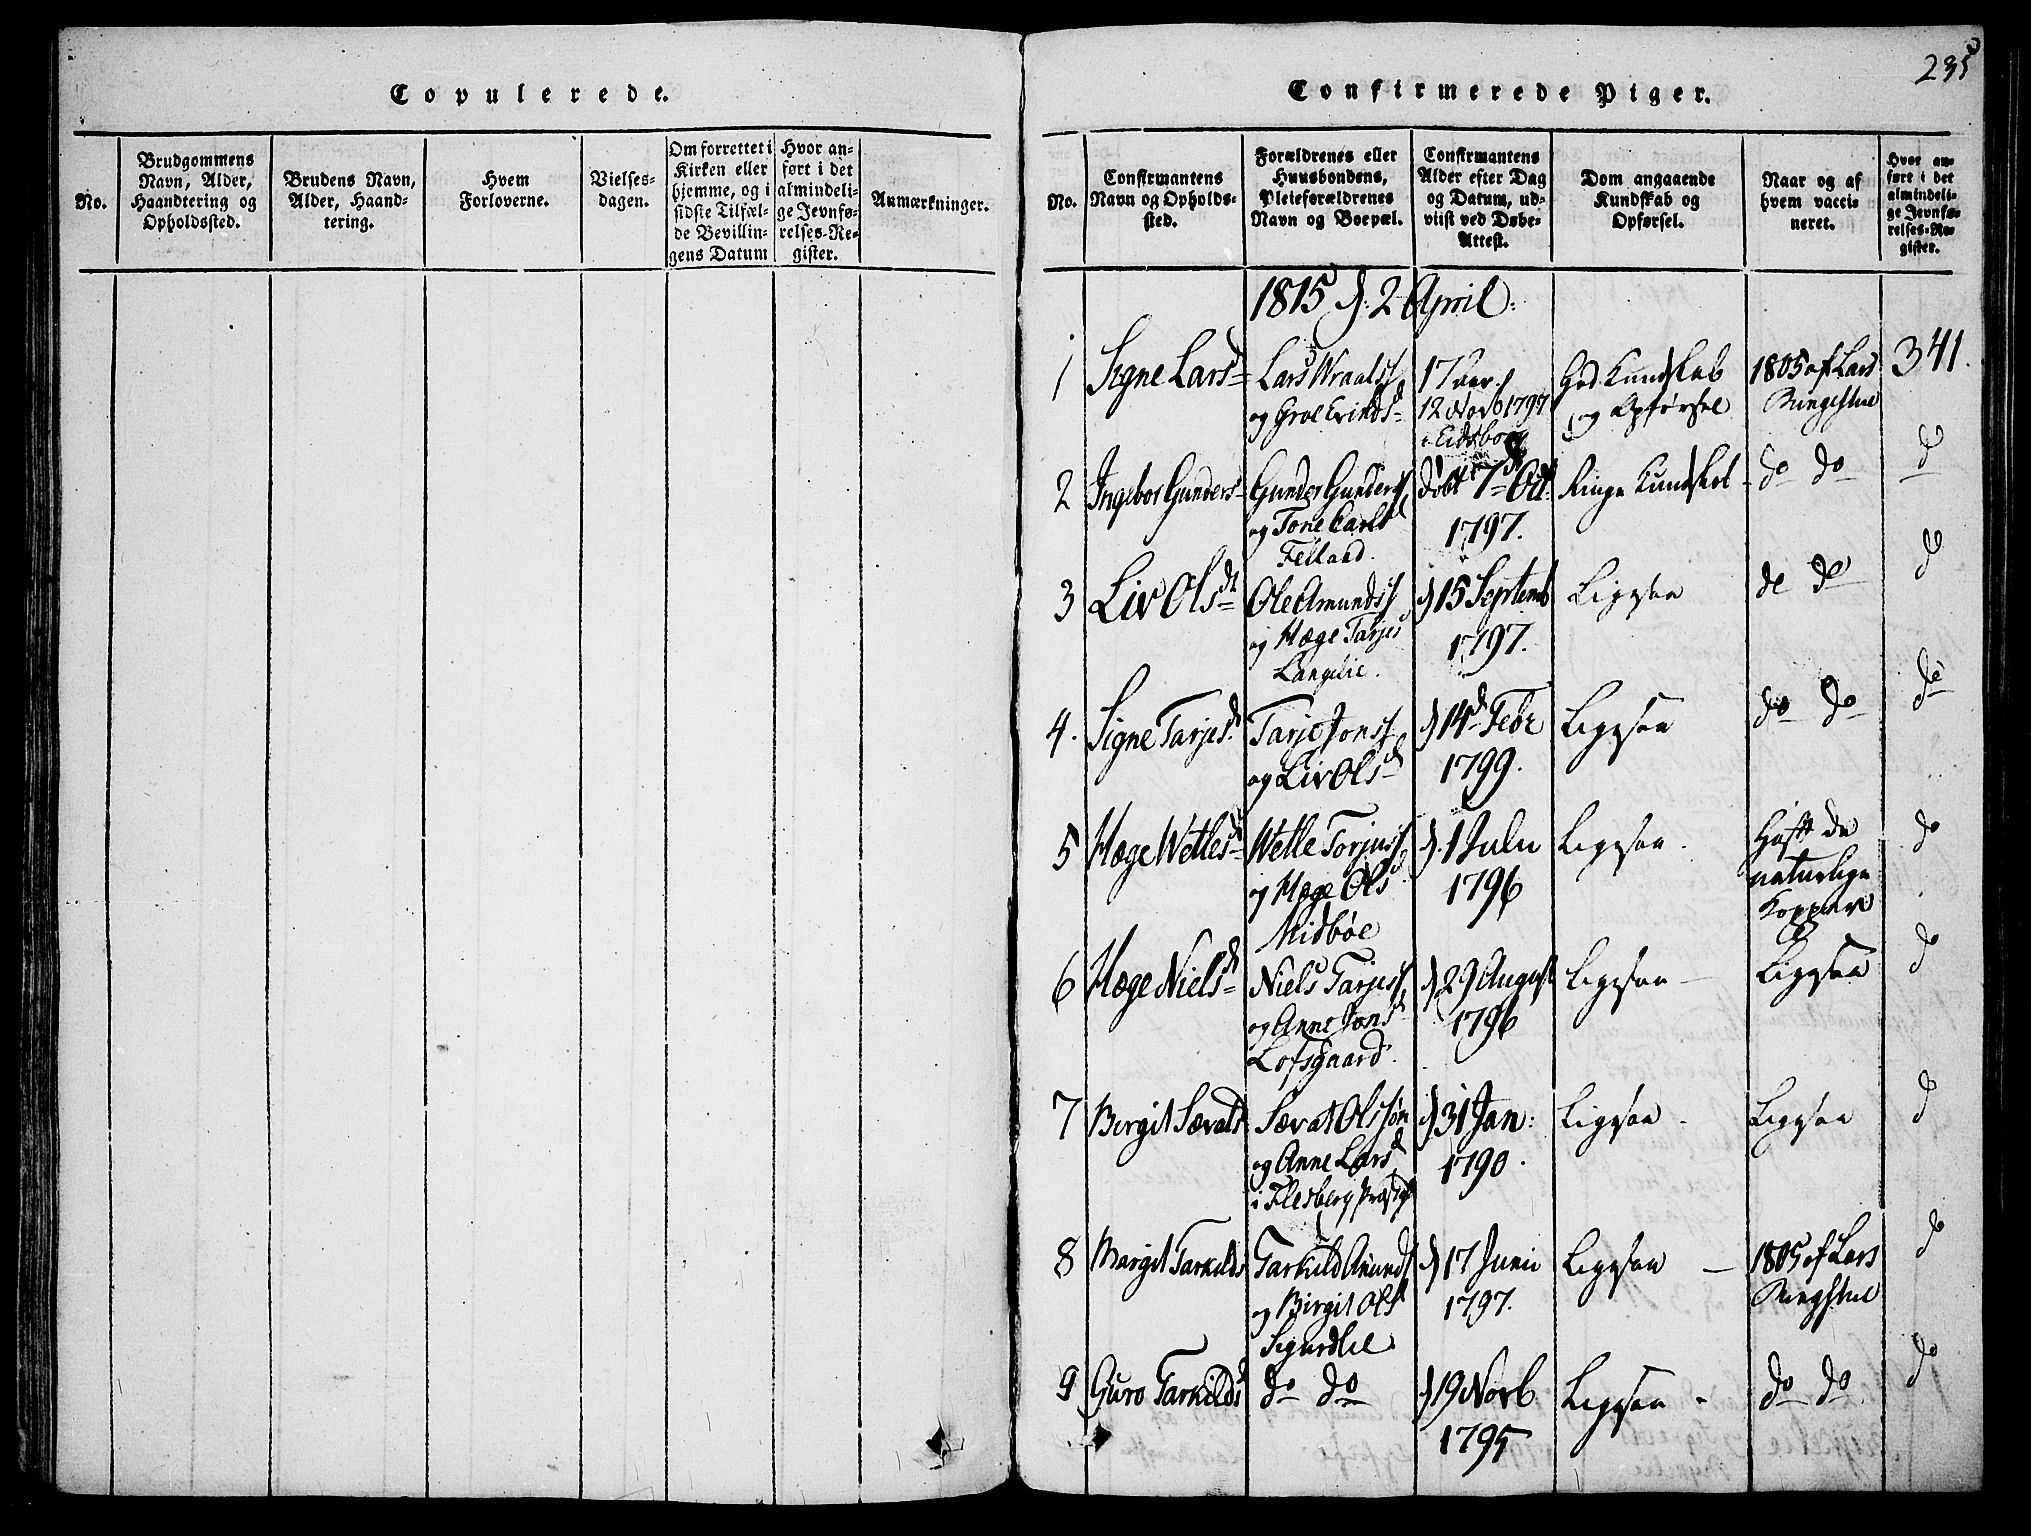 Copulerede.
No.
Brudgommens
Navn, Alder,
Haandtering og
Opholdssted.
Brudens Navn,
Alder, Haand-
tering.
Hvem
Forloverne.
Vielses-
dagen.
Om forrettet i
Kirken eller
hjemme, og i
sidste Tilfæl-
de Bevillin-
gens Datum
Hvor an-
ført i det
almindeli-
ge Jevnfø-
relses-Re-
gister.
Anmærkninger.
235
Confirmerede Piger.
No.
Confirmantens
Navn og Opholds-
sted.
Forældrenes eller
Huusbondens,
Pleieforældrenes
Navn og Boepæl.
Confirmantens
Alder efter Dag
og Datum, ud-
viist ved Døbe-
Attest.
Dom angaaende
Kundskab og
Opførsel.
Naar og af
hvem vacci-
neret.
Hvor an-
ført i det
almindeli-
ge Jevnfø-
relses-Re-
gister.
1815 d. 2 April:
1
Signe Larsd
Lars Wraalss
og Groe Evindsd
17 aar,
12 Novb 1797
i Eidsborg
God Kundskab
og Opførsel
1805 af Lars
Ringestue
341.
2
Ingebor Gundersd
Gunder Gunders
og Tone Carlsd
Felland.
døbt 7de Oct:
1797.
Ringe Kundskab
do do
do
3
Liv Olsdt
Ole Amundss
og Hæge Tarjesd
Langelie.
d 15 Septemb
1797.
Ligesaa
do do
do
4.
Signe Tarjesd
Tarje Jonss
og Liv Olsd
d 14de Febr
1799.
Ligesaa
do do
do
5
Hæge Wetlesd
Wetle Torjuss
og Hæge Olsd
Midbøe
d. 1 Julii
1796
Ligesaa.
Haft de
naturlige
Kopper
do
6
Hæge Nielsdt
Niels Tarjess
og Anne Jonsd
Lofsgaard.
d 29 August
1796
Ligesaa
Ligesaa
do
7
Birgit Sævats
Sævat Olssøn
og Anne Larsd
i Flesberg Præstgl
d 31 Jan:
1790.
Ligesaa
Ligesaa
do
8
Margit Tarkilds
Tarkild Amunds
og Birgit Olsd
Sigurdlie
d 17 Junii
1797.
Ligesaa
1805 af Lars
Ringstue
do
9
Guro Tarkildsd
do do
d 19 Novb
1795
Ligesaa
do do
do